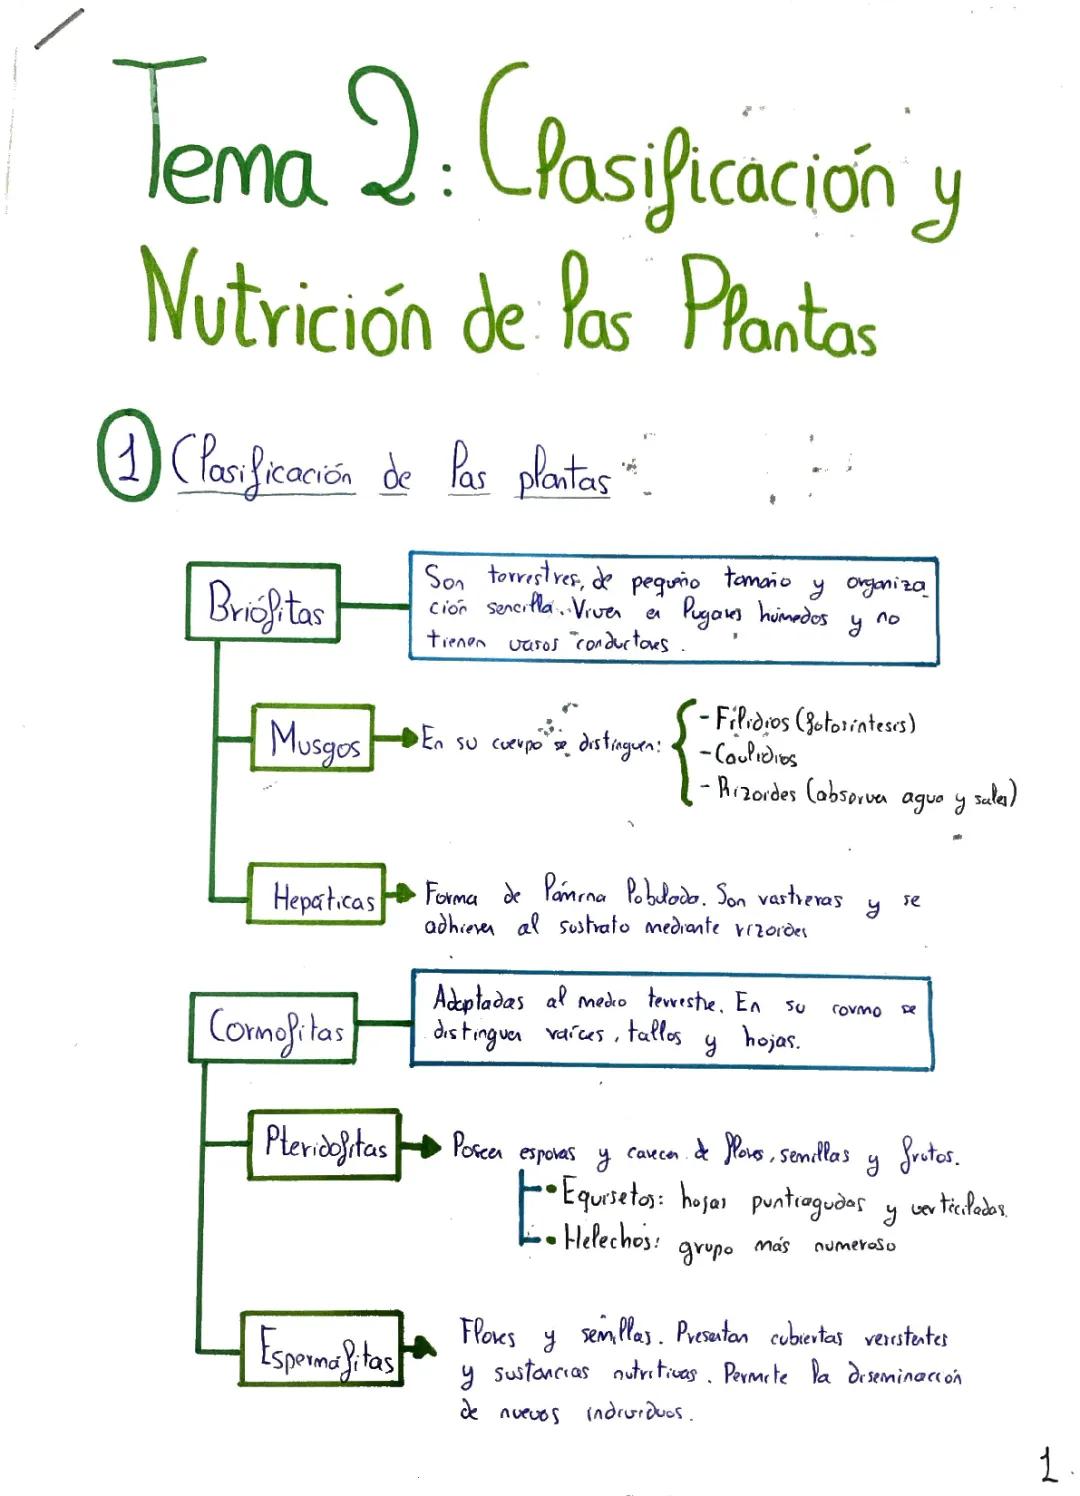 Tema 2: Clasificación y
Nutrición de las Plantas
1 Clasificación de las plantas
Briófitas
Son torrestres, de pequeño tamaño y organiza_
ción sencilla. Viven en lugares húmedos y no
tienen vasos conductores.
Musgos
En su cuerpo se distinguen:
- Filidios (fotosíntesis)
- Caulidios
- Rizoides (absorven agua y sales)
Hepáticas
Forma de lámina lobulada. Son rastreras y se
adhieren al sustrato mediante rizoides
Cormofitas
Adaptadas al medio terrestre. En su cormo se
distinguen raíces, tallos y hojas.
Pteridofitas
Poseen esporas y carecen de flores, semillas y frutos.
• Equisetos: hojas puntiagudas y verticiladas.
• Helechos: grupo más numeroso
Espermafitas
Flores y semillas. Presentan cubiertas resistentes
y sustancias nutritivas. Permite la diseminación
de nuevos individuos.
1